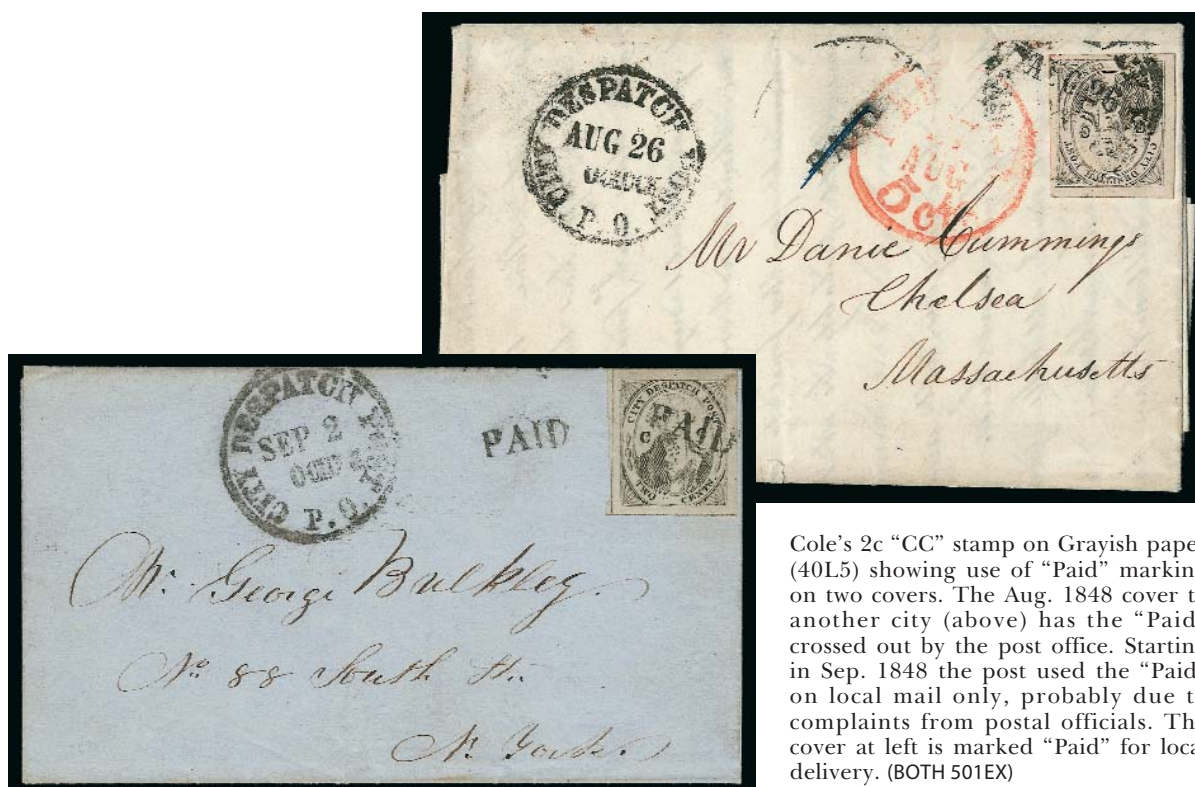 CITY DESPATCH POST
AUG 26
O'CLOCK
P. O.
PAID
AUG
5 cts
CITY DESPATCH POST
Mr Danie Cummings
Chelsea
Massachusetts
CITY DESPATCH POST
SEP 2
P. O.
PAID
CITY DESPATCH POST
C
PAID
TWO CENTS
Mr. George Bulkley.
No 88 South St.
N. York.
Cole's 2c “CC” stamp on Grayish pape
(40L5) showing use of “Paid” markin
on two covers. The Aug. 1848 cover t
another city (above) has the “Paid
crossed out by the post office. Startin
in Sep. 1848 the post used the “Paid
on local mail only, probably due t
complaints from postal officials. Th
cover at left is marked “Paid” for loca
delivery. (BOTH 501EX)